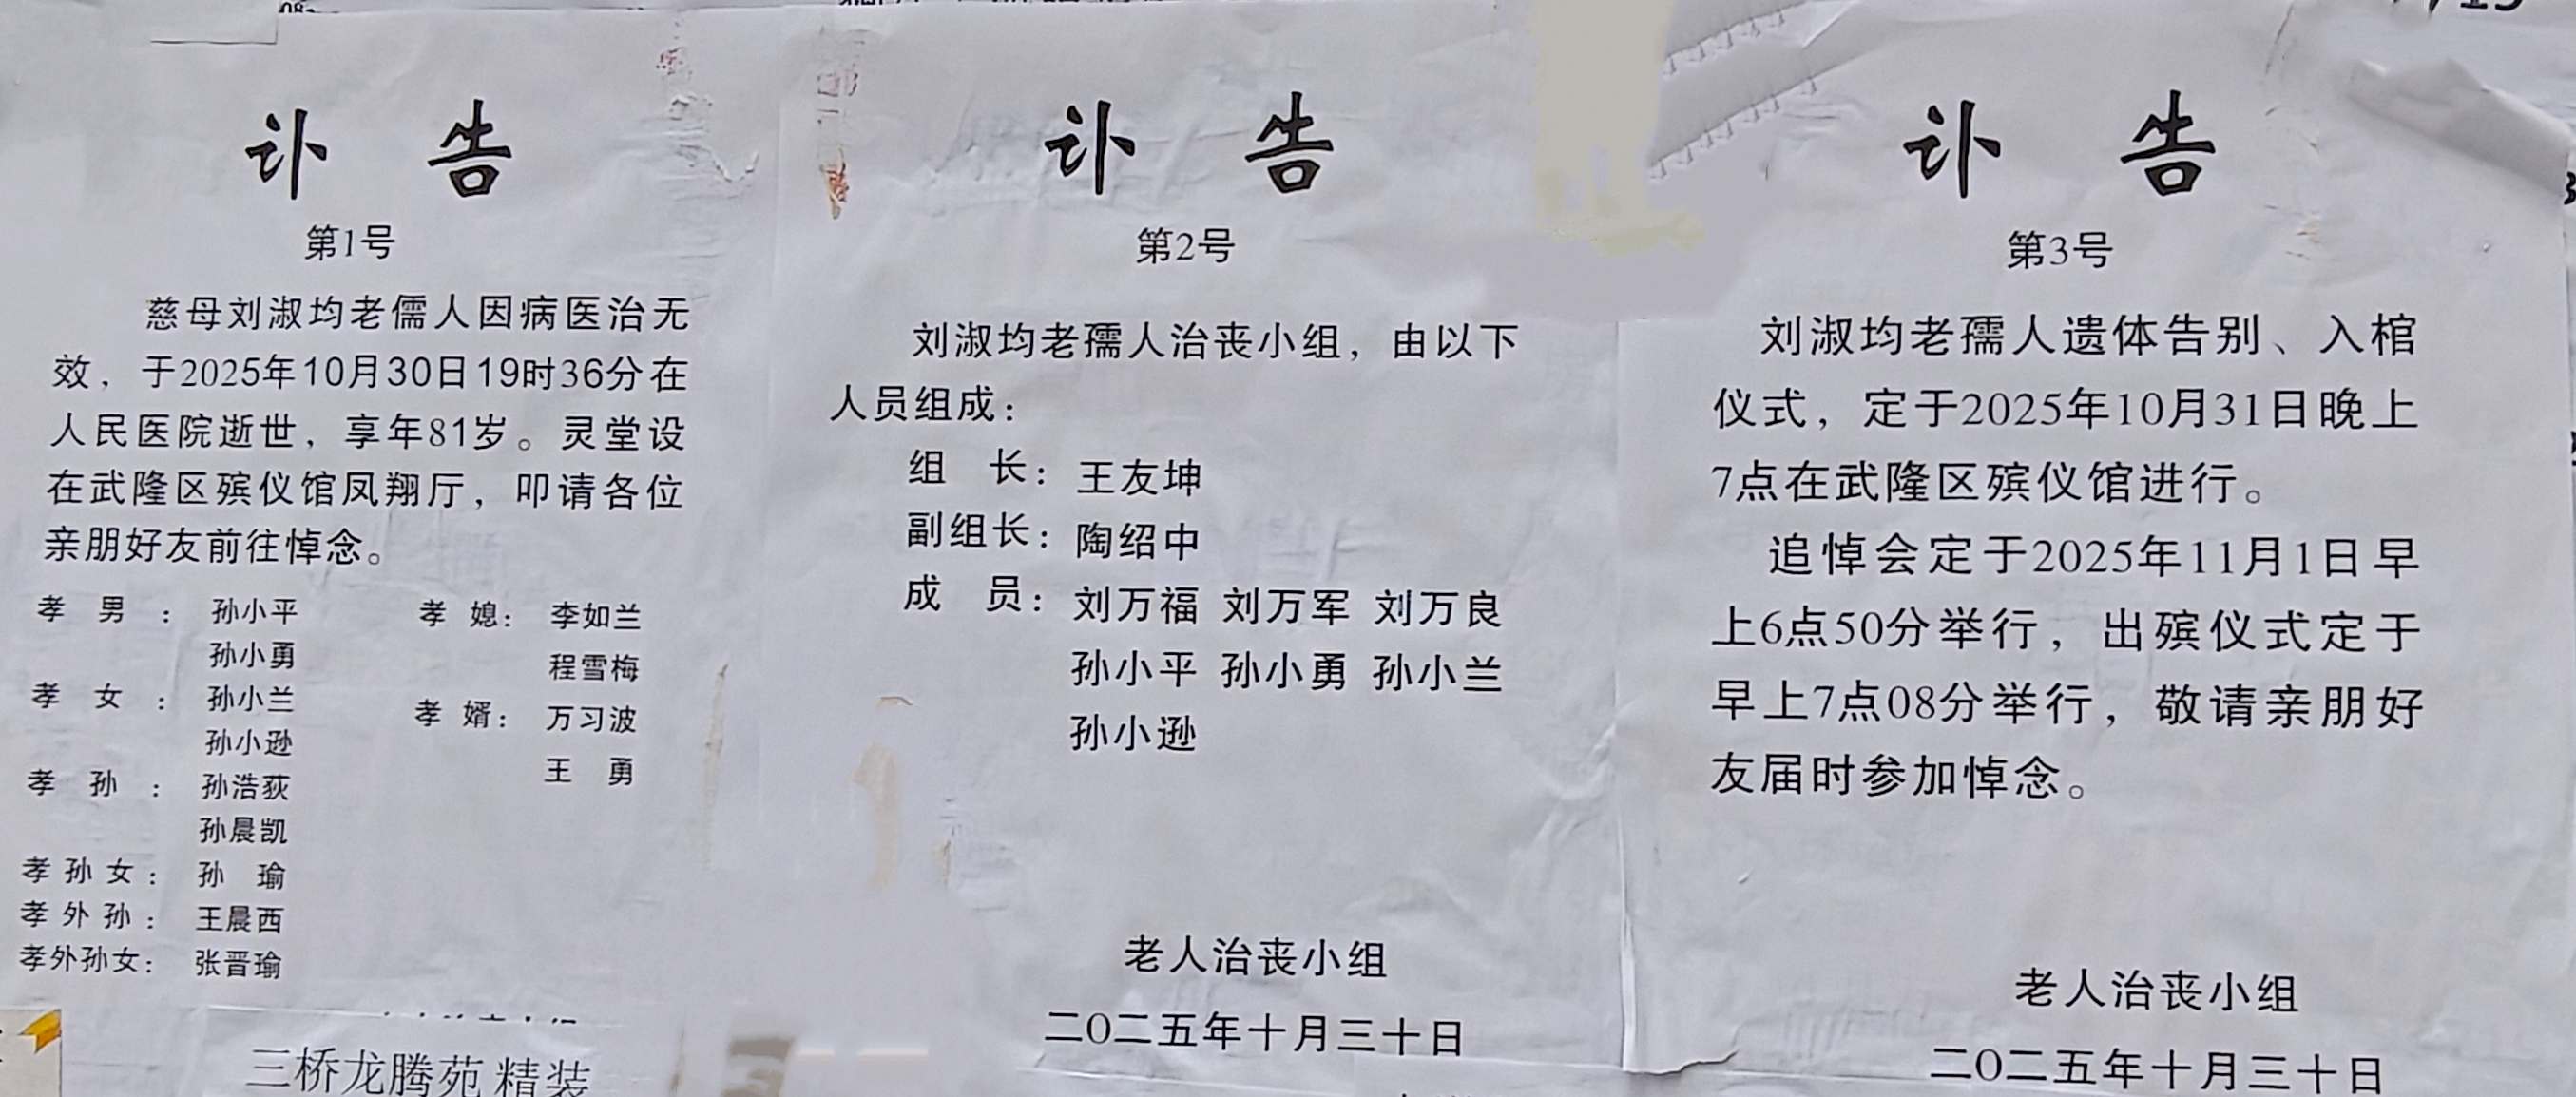 讣 告
第1号
慈母刘淑均老儒人因病医治无
效，于2025年10月30日19时36分在
人民医院逝世，享年81岁。灵堂设
在武隆区殡仪馆凤翔厅，叩请各位
亲朋好友前往悼念。
孝 男 ： 孙小平 孝 媳： 李如兰
孙小勇 程雪梅
孝 女 ： 孙小兰 孝 婿： 万习波
孙小逊 王 勇
孝 孙 ： 孙浩荻
孙晨凯
孝 孙 女 ： 孙 瑜
孝 外 孙 ： 王晨西
孝外孙女： 张晋瑜
三桥龙腾苑 精装
讣 告
第2号
刘淑均老孺人治丧小组，由以下
人员组成：
组 长： 王友坤
副组长： 陶绍中
成 员： 刘万福 刘万军 刘万良
孙小平 孙小勇 孙小兰
孙小逊
老人治丧小组
二O二五年十月三十日
讣 告
第3号
刘淑均老孺人遗体告别、入棺
仪式，定于2025年10月31日晚上
7点在武隆区殡仪馆进行。
追悼会定于2025年11月1日早
上6点50分举行，出殡仪式定于
早上7点08分举行，敬请亲朋好
友届时参加悼念。
老人治丧小组
二O二五年十月三十日